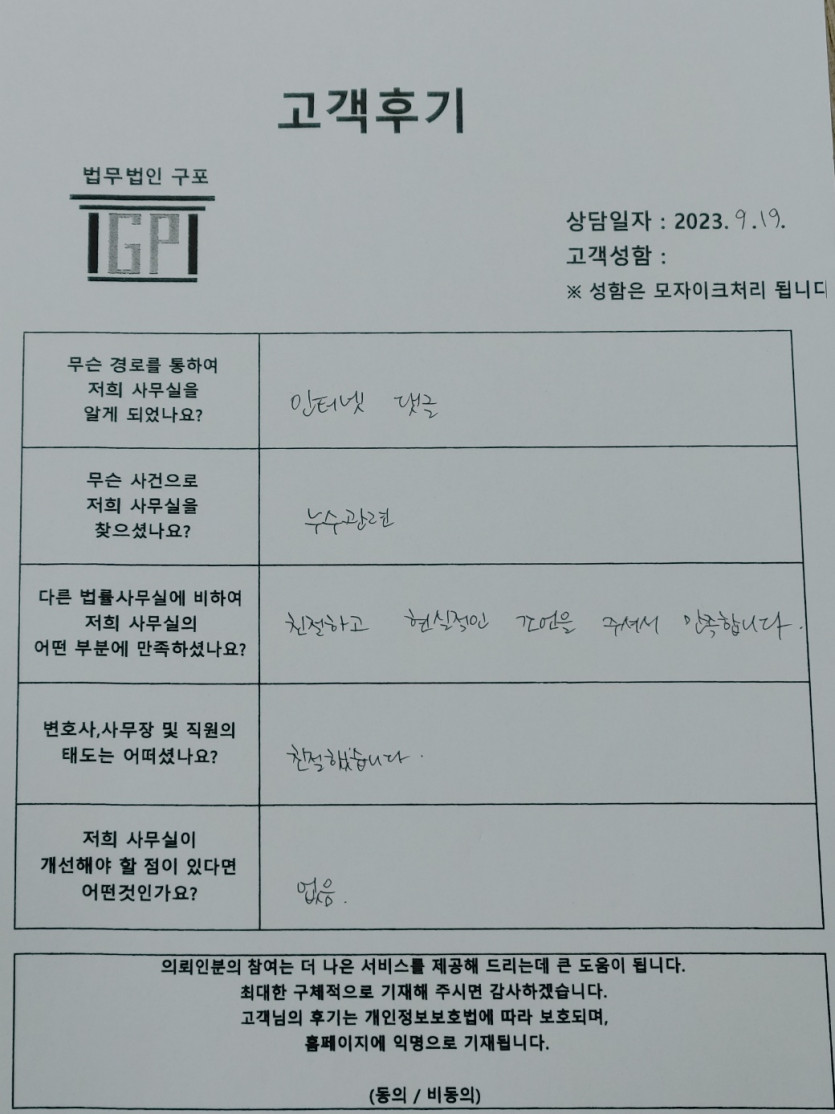 고객후기
법무법인 구포
IGPI
상담일자 : 2023. 9. 19.
고객성함 :
※ 성함은 모자이크처리 됩니다
무슨 경로를 통하여
저희 사무실을
알게 되었나요?
인터넷 댓글
무슨 사건으로
저희 사무실을
찾으셨나요?
누수관련
다른 법률사무실에 비하여
저희 사무실의
어떤 부분에 만족하셨나요?
친절하고 현실적인 조언을 주셔서 만족합니다.
변호사,사무장 및 직원의
태도는 어떠셨나요?
친절했습니다.
저희 사무실이
개선해야 할 점이 있다면
어떤것인가요?
없음.
의뢰인분의 참여는 더 나은 서비스를 제공해 드리는데 큰 도움이 됩니다.
최대한 구체적으로 기재해 주시면 감사하겠습니다.
고객님의 후기는 개인정보보호법에 따라 보호되며,
홈페이지에 익명으로 기재됩니다.
(동의 / 비동의)